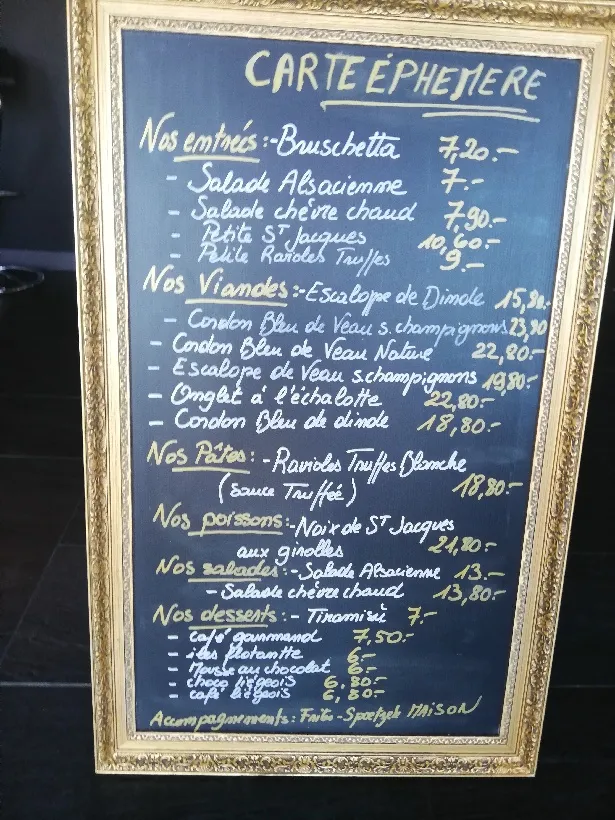 CARTE ÉPHEMERE
Nos entrées :- Bruschetta 7,20.-
- Salade Alsacienne 7.-
- Salade chèvre chaud 7,90.-
- Petite ST Jacques 10,60.-
- Petite Ravioles Truffes 9.-
Nos Viandes :- Escalope de Dinde 15,80.-
- Cordon Bleu de Veau s.champignons 23,90
- Cordon Bleu de Veau Nature 22,80.-
- Escalope de Veau s.champignons 19,80.-
- Onglet à l'échalotte 22,80.-
- Cordon Bleu de dinde 18,80.-
Nos Pâtes : - Ravioles Truffes Blanche
(Sauce Truffée) 18,80.-
Nos poissons :- Noix de ST Jacques
aux girolles 21,80.-
Nos salades :- Salade Alsacienne 13.-
- Salade chèvre chaud 13,80.-
Nos desserts :- Tiramisù 7.-
- café gourmand 7.50.-
- iles flotantte 6.-
- Mousse au chocolat 6.-
- choco liégeois 6,80.-
- café liégeois 6,80.-
Accompagnements : Frites - Spaetzele MAISON